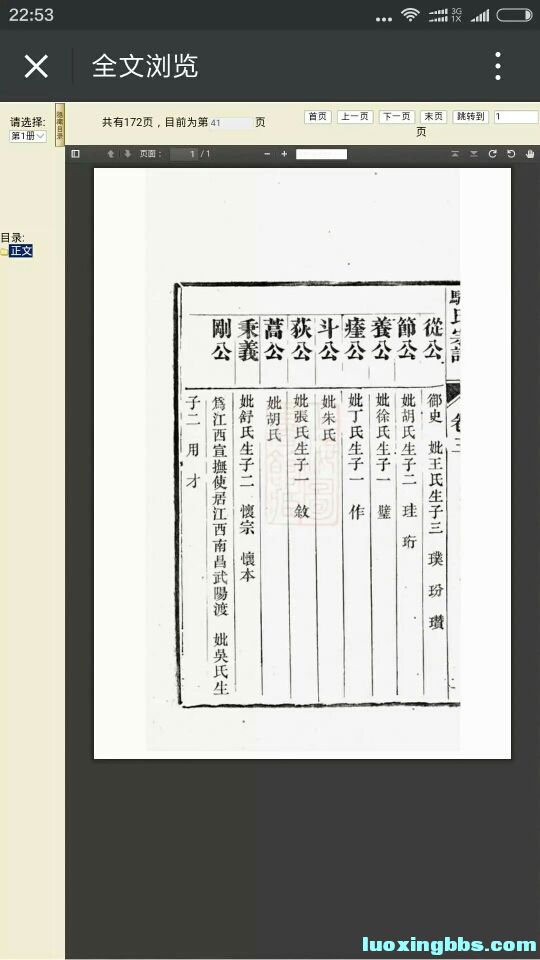 22:53
3G
1X
全文浏览
请选择:
第1册
共有172页，目前为第 41 页
首页 上一页 下一页 末页 跳转到 1
页
页面： 1 / 1
目录:
正文
氏宗譜
卷三
從公 御史 妣王氏生子三 璞 玢 瓚
節公 妣胡氏生子二 珪 珩
養公 妣徐氏生子一 璧
瘞公 妣丁氏生子一 作
斗公 妣朱氏
荻公 妣張氏生子一 敘
蒿公 妣胡氏
秉義 妣舒氏生子二 懷宗 懷本
剛公 爲江西宣撫使居江西南昌武陽渡 妣吳氏生
子二 用 才
luoxingbbs.com